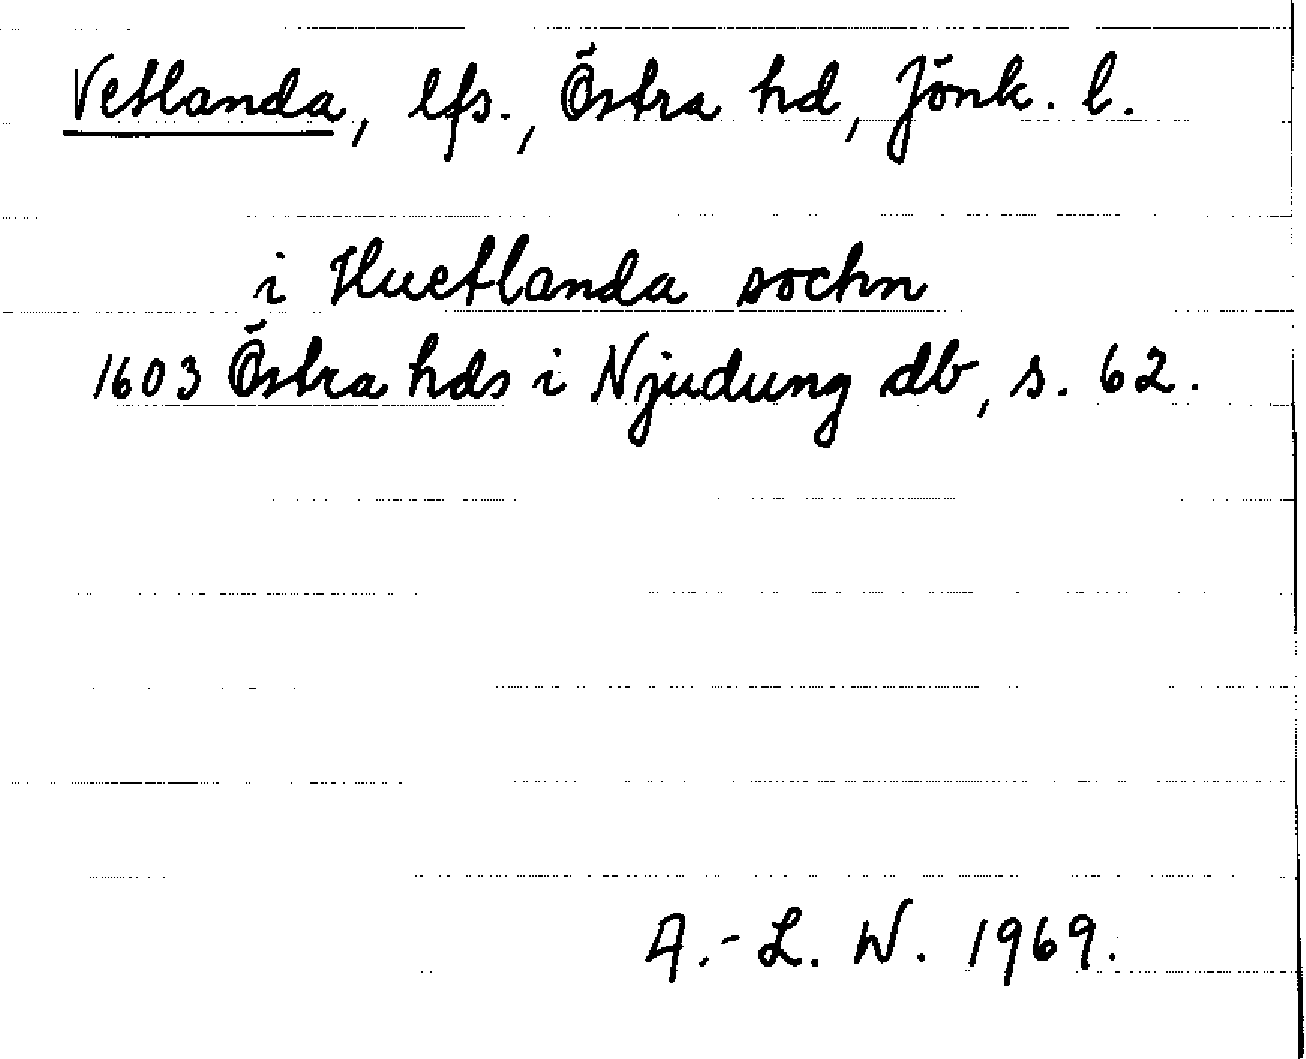 Vetlanda, lfs., Östra hd, Jönk. l.
i Huetlanda sochn
1603 Östra hds i Njudung db, s. 62.
A.-L. W. 1969.